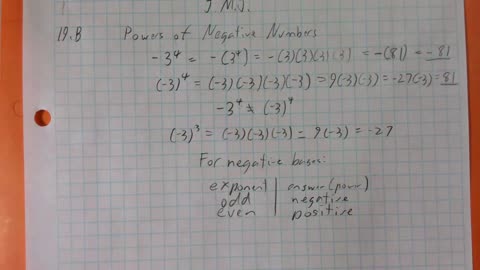 J.M.J.
19.B Powers of Negative Numbers
-3⁴ = -(3⁴) = -(3)(3)(3)(3) = -(81) = -81
(-3)⁴ = (-3)(-3)(-3)(-3) = 9(-3)(-3) = -27(-3) = 81
-3⁴ ≠ (-3)⁴
(-3)³ = (-3)(-3)(-3) = 9(-3) = -27
For negative bases:
exponent | answer (power)
odd | negative
even | positive